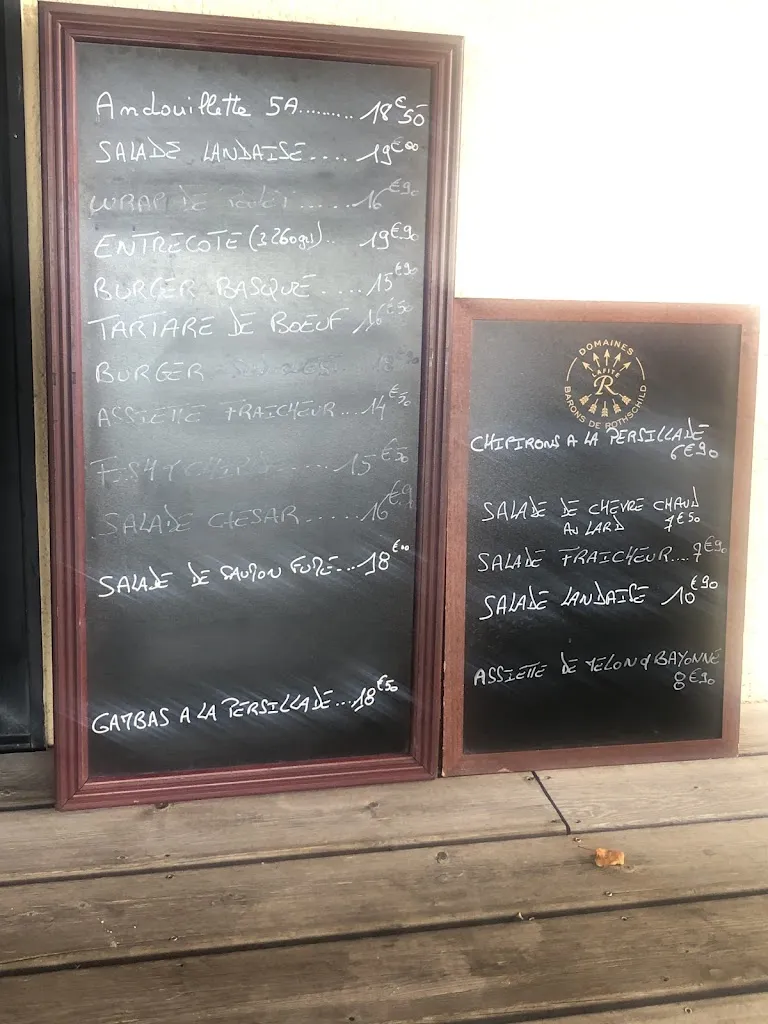 Andouillette 5A......... 18€50
SALADE LANDAISE..... 19€00
WRAP DE POULET ...... 16€90
ENTRECOTE (± 260grs).. 19€90
BURGER BASQUE..... 15€90
TARTARE DE BOEUF 16€50
BURGER
ASSIETTE FRAICHEUR... 14€50
FISH & CHIPS....... 15€50
SALADE CESAR...... 16€9
SALADE DE SAUMON FUMÉ... 18€00
GAMBAS A LA PERSILLADE... 18€50
DOMAINES
LAFITE
R
BARONS DE ROTHSCHILD
CHIPIRONS A LA PERSILLADE
6€90
SALADE DE CHEVRE CHAUD
AU LARD 7€50
SALADE FRAICHEUR.... 7€90
SALADE LANDAISE 10€90
ASSIETTE DE MELON & BAYONNE
8€90